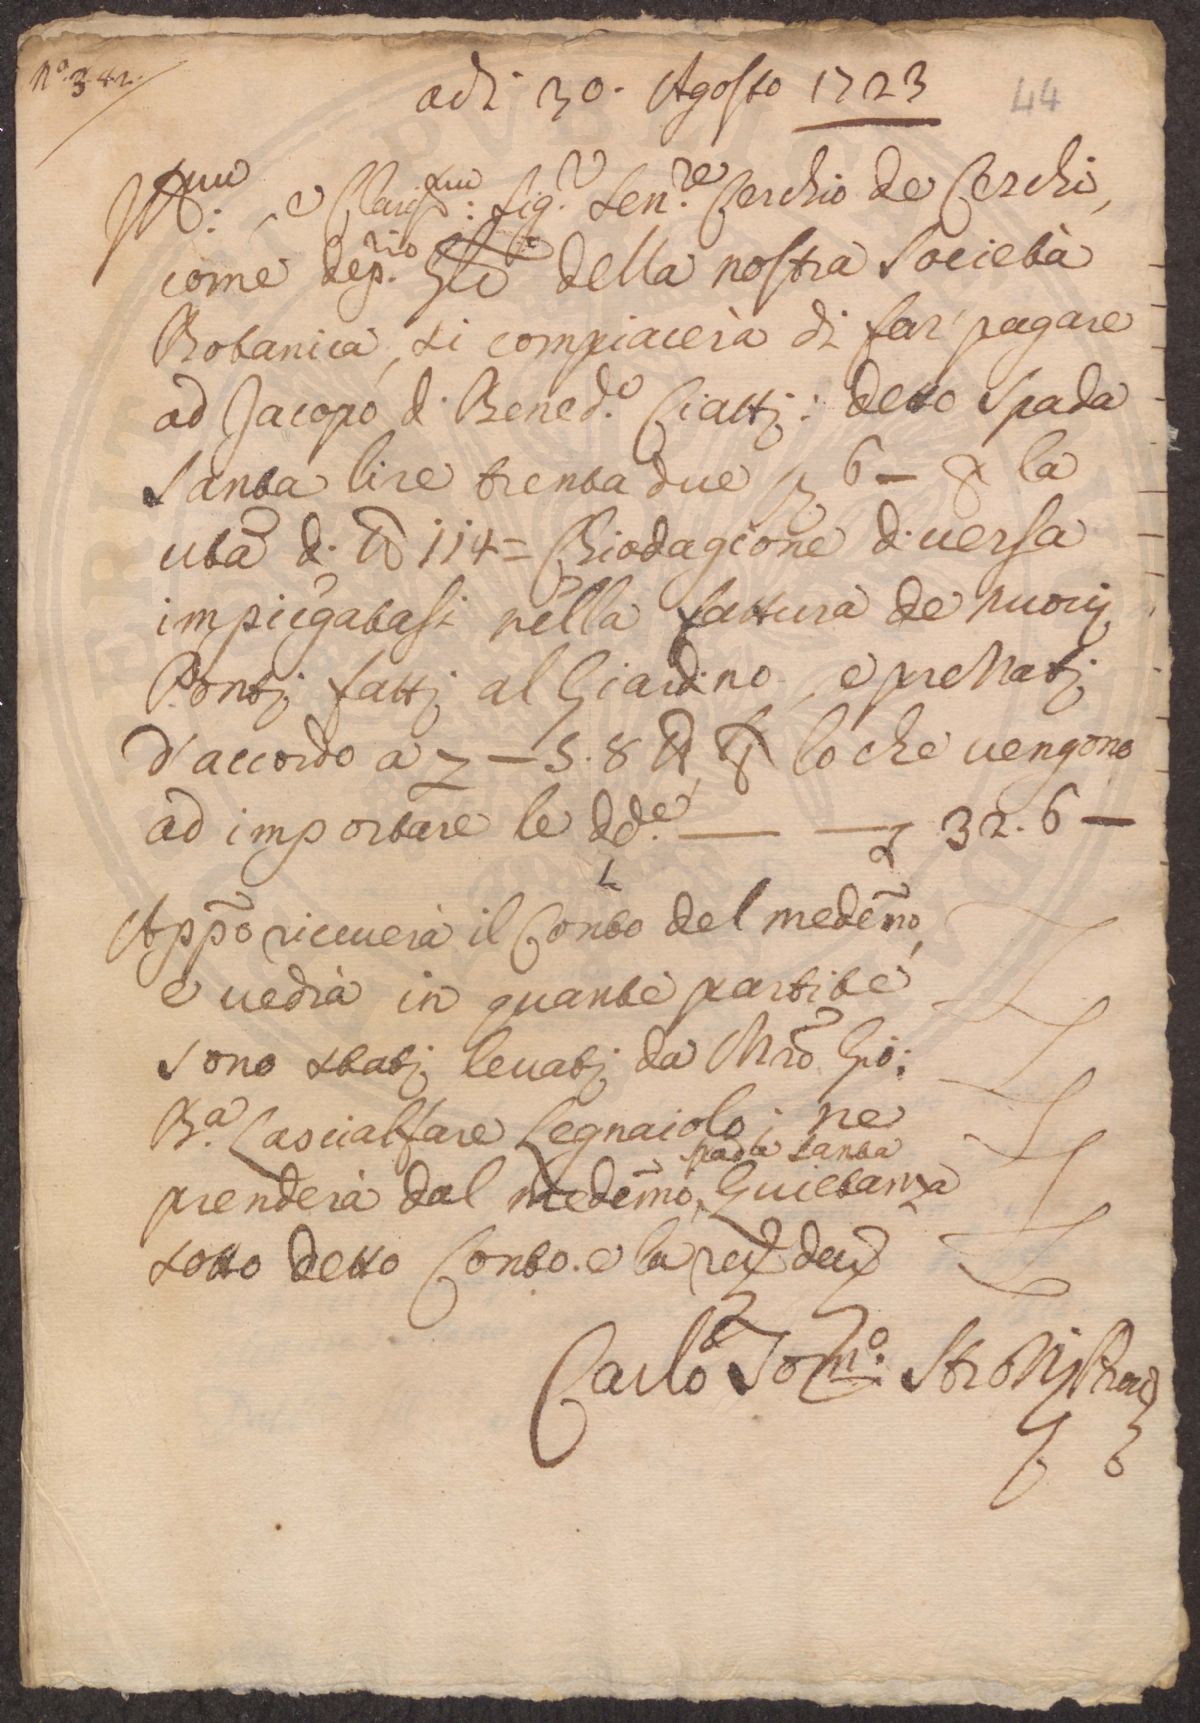 N.o 342.
adi 30. Agosto 1723
44
Ill.mo e Clariss.mo Sig.r Sen.re Cerchio de Cerchi,
come dep.rio Gle della nostra Società
Botanica, si compiacerà di far pagare
ad Jacopo di Bened.o Ciattj: detto Spada
Santa lire trenta due s 6 — p la
vta di lb 114 = Chiodagione diversa
impiegatasi nella fattura de nuovj
Pontj fattj al Giardino, e
d'accordo a £ — 5.8 la lb loche vengono
ad importare le dde. — — £ 32.6 —
Appo riceverà il Conto del medemo,
e vedrà in quante partite
sono statj levatj da Mro Gio:
Ba. Cascialfare Legnaiolo; ne
prenderà dal medemo, Spada Santa Quietanza
sotto detto Conto. e la
Carlo Tom.o Strozzj